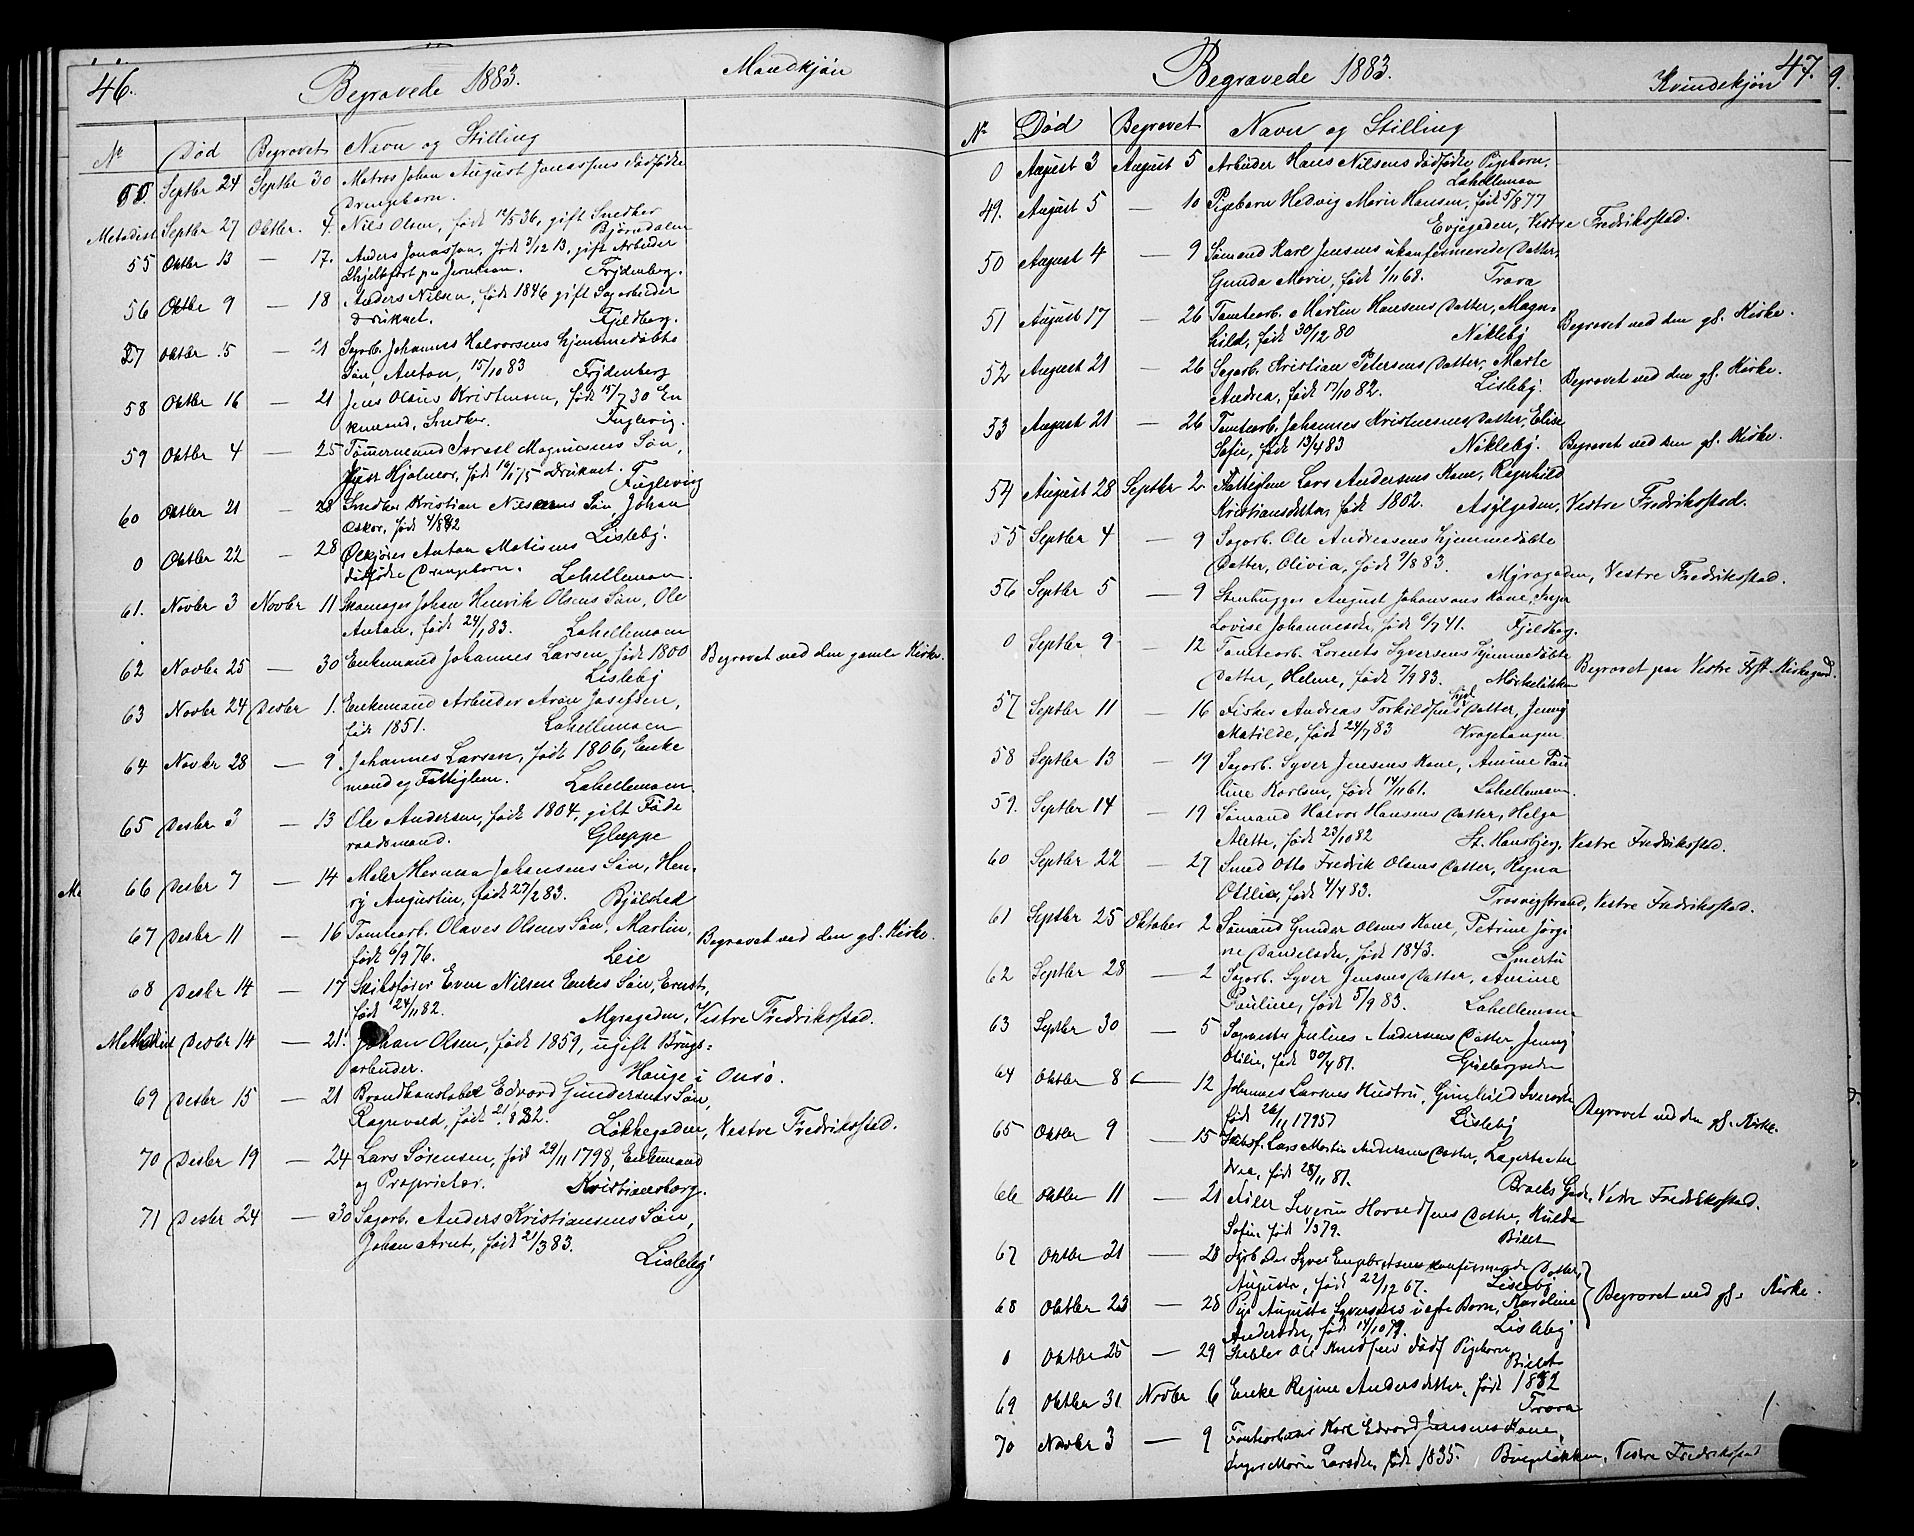 46.
Begravede 1883.
Mandkjøn
No Død Begravet Navn og Stilling
Septbr 24 Septbr 30 Matros Johan August Jonassens dødfødte
Drengebarn.
Metodist Septbr 27 Oktbr. 4 Nils Olsen, født 36, gift Snedker
Bjørndalen
55 Oktbr 13 — 17. Anders Jonassen, født 3/12 13, gift Arbeider
Frydenberg.
56 Oktbr 9 — 18 Anders Nilsen, født 1846 gift Sagarbeider
druknet. Fjeldberg.
57 Oktbr 5 — 21 Sagarb. Johannes Halvorsens hjemmedøbte
Søn, Anton, 15/10 83 Frydenberg
58 Oktbr 16 — 21 Jens Olaus Kristensen, født 15/7 30 En
kemand, Snedker. Fuglevig.
59 Oktbr 4 — 25 Tømmermand Israel Magnusens Søn,
Hjalmar, født druknet. Fuglevig
60 Oktbr 21 — 28 Snedker Kristian Nilsens Søn, Johan
Oskar, født Lisleby.
0 Oktbr 22 — 28 Anton Matisens
dødfødte Drengebarn. Lahellemoen.
61. Novbr 3 Novbr 11 Skomager Johan Henrik Olsens Søn, Ole
Anton, født 24/1 83. Lahellemoen
62 Novbr 25 — 30 Enkemand Johannes Larsen, født 1800 Begravet ved den gamle Kirke.
Lisleby
63 Novbr 24 Desbr 1. Enkemand Arbeider Aron Josefsen,
født 1851. Lahellemoen
64 Novbr 28 — 9. Johannes Larsen, født 1806, Enke
mand og Fattiglem. Lahellemoen
65 Desbr 3 — 13 Ole Andersen, født 1804, gift Føde
raadsmand. Gluppe
66 Desbr 7 — 14 Maler Herman Johansens Søn, Hen-
ry Augustin, født 27/2 83. Bjølstad
67 Desbr 11 — 16 Tomtearb. Olaves Olsens Søn, Martin, Begravet ved den gl. Kirke.
født 6/9 76. Leie
68 Desbr 14 — 17 Skibsfører Even Nilsens Enkes Søn, Ernst,
født 24/11 82. Myragaden, Vestre Fredriksstad.
Methodist Desbr 14 — 21. Johan Olsen, født 1859, ugift Brugs-
arbeider. Hauge i Onsø.
69 Desbr 15 — 21 Brandkonstabel Edvard Gundersens Søn,
Ragnvald, født Løkkegaden, Vestre Fredriksstad.
70 Desbr 19 — 24 Lars Sørensen, født 29/11 1798, Enkemand
og Proprietær. Kristiansborg.
71 Desbr 24 — 30 Sagarb. Anders Kristiansens Søn,
Johan Arnt, født 21/3 83.
Lisleby
47.
Begravede 1883.
Kvindekjøn
No Død Begravet Navn og Stilling
0 August 3 August 5 Arbeider Hans Nilsens dødfødte Pigebarn.
Lahellemoen
49. August 5 — 10 Pigebarn Hedvig Marie Hansen, født 5/8 77
Evjegaden, Vestre Fredriksstad.
50 August 4 — 9 Sømand Karl Jensens ukonfirmerede Datter,
Gunda Marie, født 1/11 68. Trara
51 August 17 — 26 Tomtearb. Martin Hansens Datter, Magn-
hild, født 30/12 80 Nøkleby Begravet ved den gl. Kirke.
52 August 21 — 26 Sagarb. Kristian Petersens Datter, Marte
Andrea, født 17/10 82. Lisleby. Begravet ved den gl. Kirke.
53 August 21 — 26 Tomtearb. Johannes Kristensens Datter, Elise
Sofie, født 13/4 83 Nøkleby. Begravet ved den gl. Kirke.
54 August 28 Septbr 2 Fattiglem Lars Andersens Kone, Ragnhild
Kristiansdatter, født 1802. Asylgaden, Vestre Fredriksstad.
55 Septbr 4 — 9 Sagarb. Ole Andreasens hjemmedøbte
Datter, Olivia, født 9/8 83. Myragaden, Vestre Fredriksstad.
56 Septbr 5 — 9 Stenhugger August Johansens Kone, Inga
Lovise Johannesdr, født 6/7 41. Fjeldberg.
0 Septbr 9 — 12 Tomtearb. Lorents Syversens hjemmedøbte
Datter, Helene, født 7/9 83. Mørkeløkken Begravet paa Vestre Fsst. Kirkegaard.
57 Septbr 11 — 16 Fisker Andreas Torkildsens Datter, Jenny
Matilde, født 24/7 83 Kragetangen
58 Septbr 13 — 19 Sagarb. Syver Jensens Kone, Amine Pau
line Karlsen, født 14/11 61. Lahellemoen.
59. Septbr 14 — 19 Sømand Halvor Hansens Datter, Helga
Alette, født 23/10 82 St. Hansbjerg, Vestre Fredriksstad.
60 Septbr 22 — 27 Smed Otto Fredrik Olsens Datter, Ragna
Otilia, født 4/4 83. Trosvigstrand, Vestre Fredriksstad.
61 Septbr 25 Oktober 2 Sømand Gunder Olsens Kone, Petrine Jørgi
ne Danielsdr, født 1843. Smertu
62 Septbr 28 — 2 Sagarb. Syver Jensens Datter, Amine
Pauline, født 5/9 83. Lahellemoen
63 Septbr 30 — 5 Sagmester Julius Andersens Datter, Jenny
Otilie, født 30/4 81. Gudebergsdr
64 Oktbr 8 — 12 Johannes Larsens Hustru, Gunhild Iversdr
født 26/11 1795 Lisleby Begravet ved den gl. Kirke.
65 Oktbr 9 — 15 Skibsf. Lars Martin Andersens Datter, Lagertha An
drea, født 28/11 81. Brochs Gade, Vestre Fredriksstad.
66 Oktbr 11 — 21 Severin Datter, Hulda
Sofie født 1/3 79. Bilet
67 Oktbr 21 — 28 Syver Engebretsens konfirmerede Datter,
Augusta, født 22/12 67. Lisleby
68 Oktbr 23 — 28 Pige Augusta Syversdrs uægte Barn, Karoline Begravet ved gl. Kirke.
Andersdr, født 14/10 79. Lisleby
0 Oktbr 25 — 29 Stabler Ole Knudsens dødf. Pigebarn
Bilet
69 Oktbr 31 Novbr 6 Enke Regine Andersdatter, født 1832
Trara
70 Novbr 3 — 9 Tomtearbeider Karl Edvard Jensens Kone,
Inger Marie Larsdr, født 1835. Bugeløkken, Vestre Fredriksstad